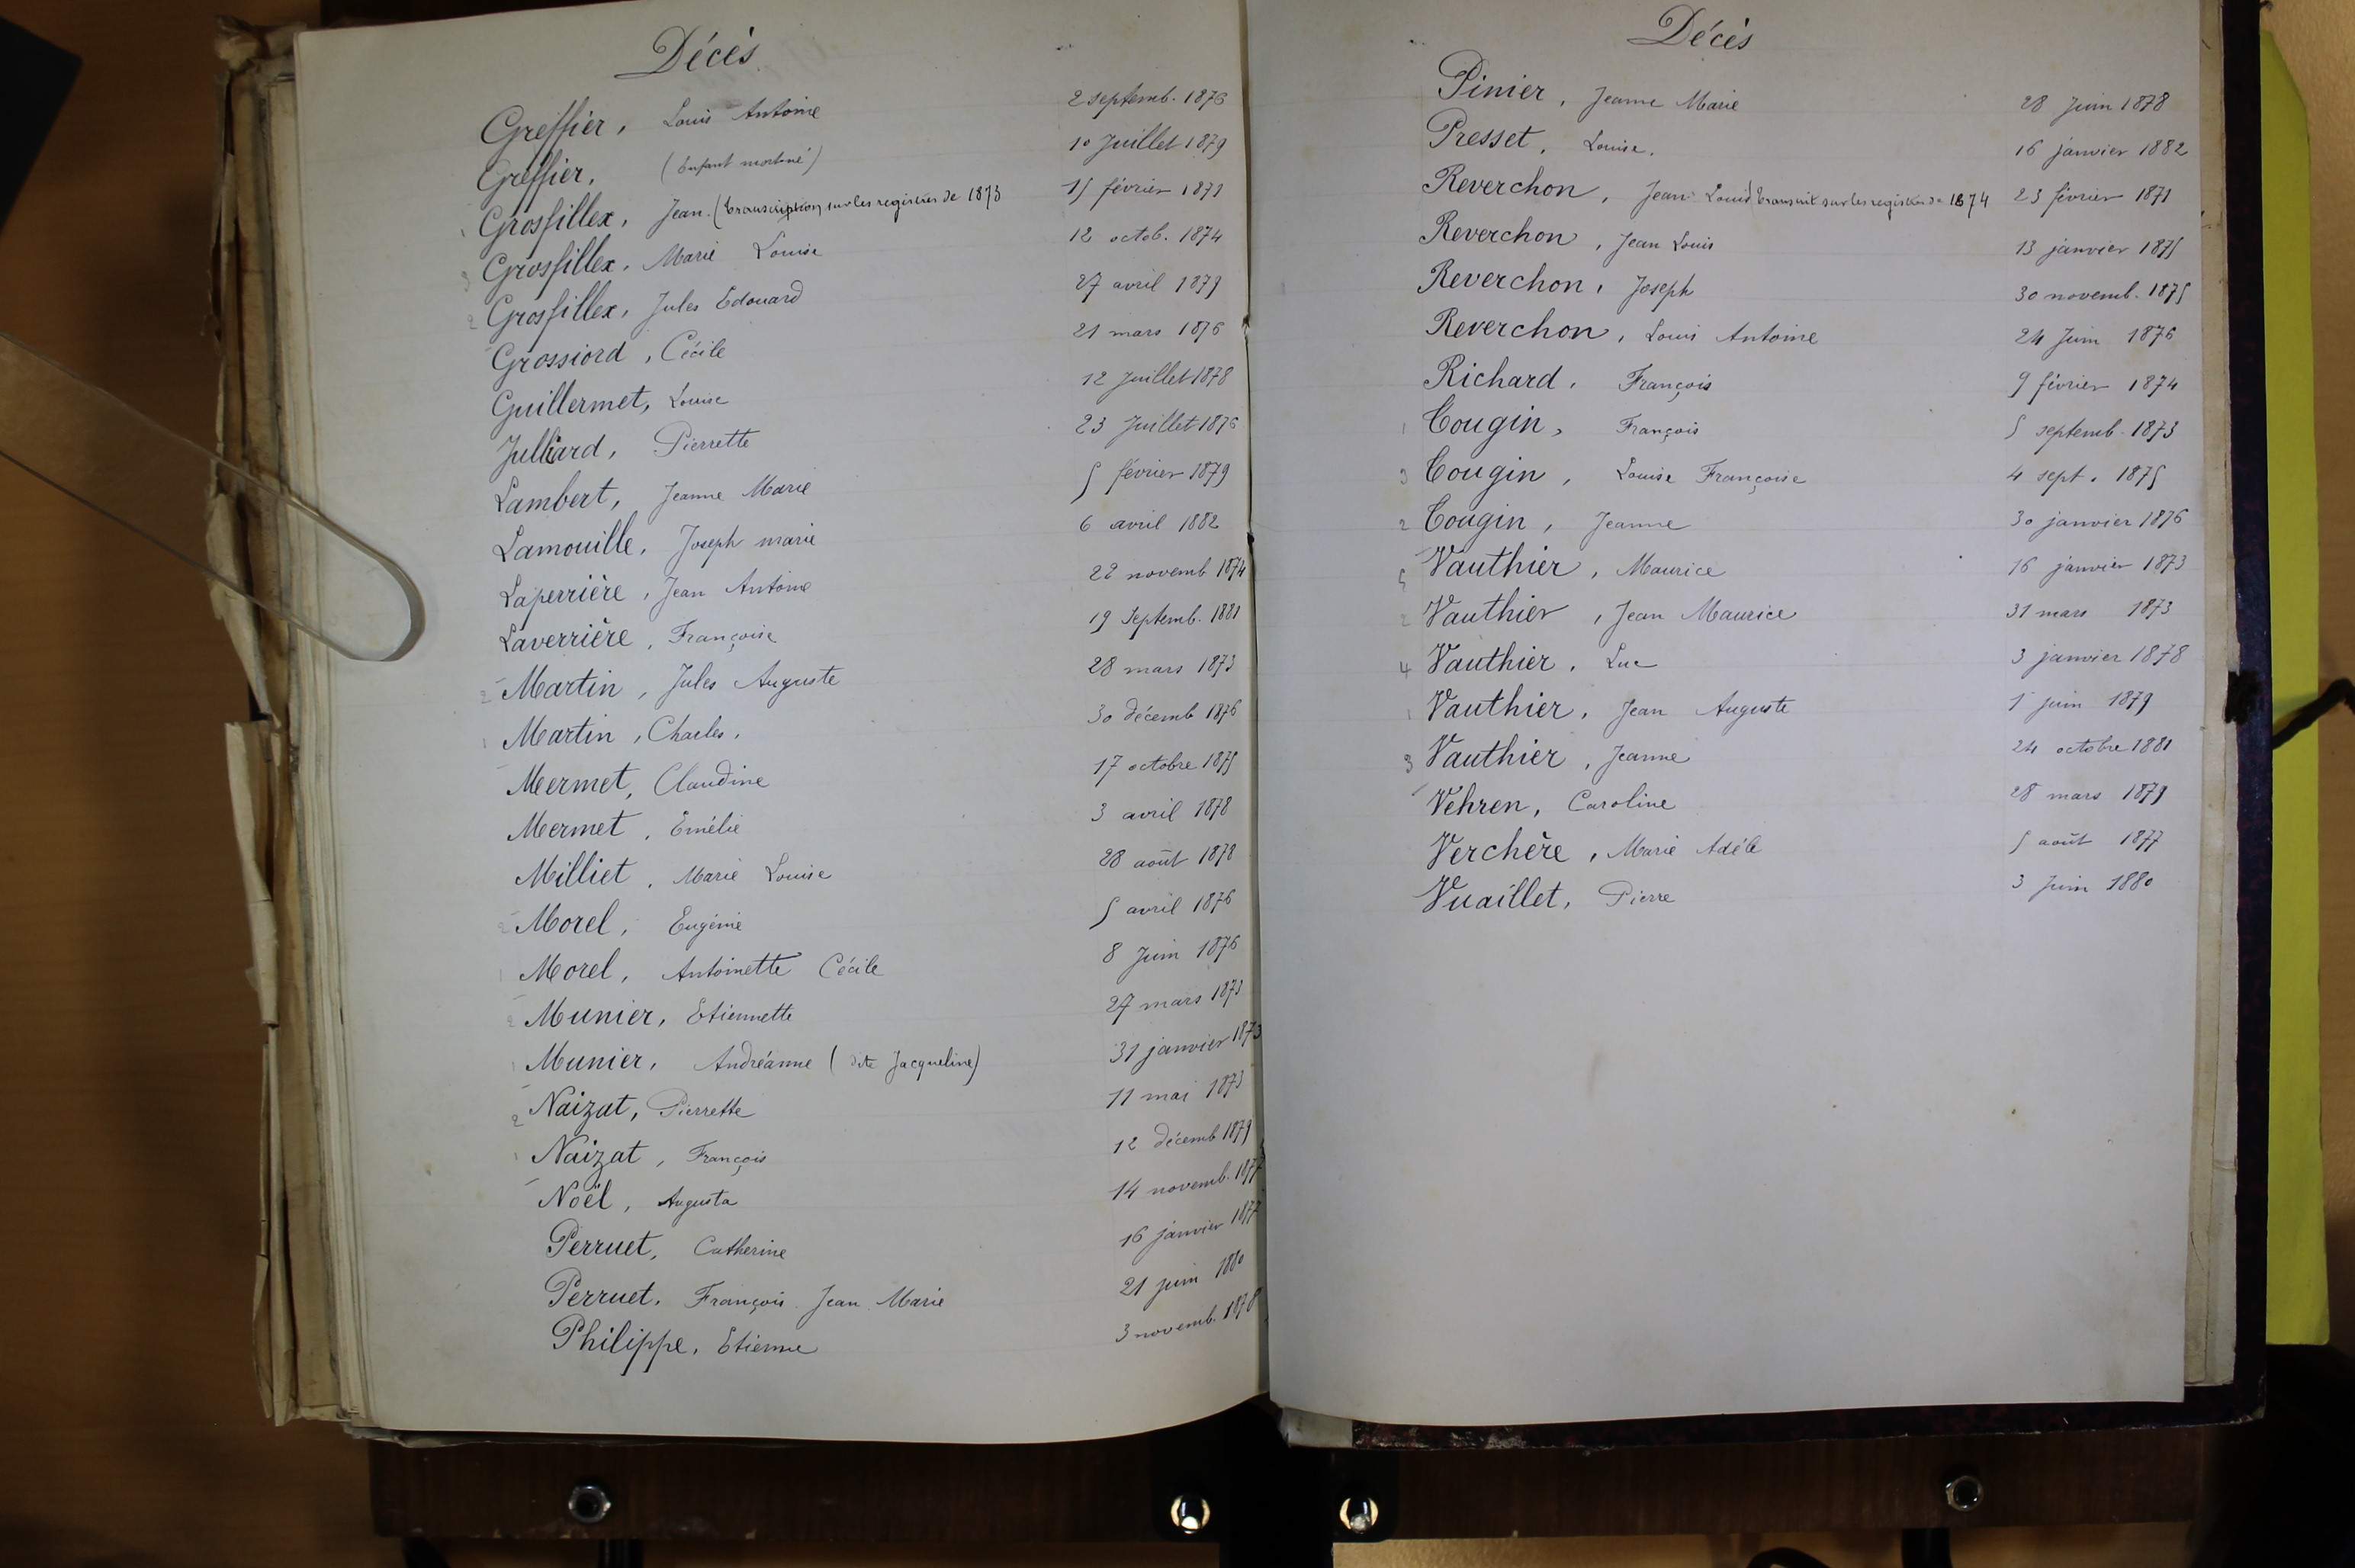 Décès
Greffier, Louis Antoine 2 septemb. 1876
Greffier, (Enfant mort-né) 10 Juillet 1879
Grosfillex, Jean. (transcription sur les registres de 1873 15 février 1871
Grosfillex, Marie Louise 12 octob. 1874
Grosfillex, Jules Edouard 27 avril 1879
Grossiord, Cécile 21 mars 1876
Guillermet, Louise 12 Juillet 1878
Julliard, Pierrette 23 Juillet 1876
Lambert, Jeanne Marie 5 février 1879
Lamouille, Joseph marie 6 avril 1882
Laperrière, Jean Antoine 22 novemb 1874
Laverrière, Françoise 19 Septemb. 1881
2 Martin, Jules Auguste 28 mars 1873
1 Martin, Charles, 30 décemb 1876
Mermet, Claudine 17 octobre 1875
Mermet, Emélie 3 avril 1878
Milliet, Marie Louise 28 août 1878
2 Morel, Eugénie 5 avril 1876
1 Morel, Antoinette Cécile 8 Juin 1876
2 Munier, Etiennette 27 mars 1873
1 Munier, Andréanne (dite Jacqueline) 31 janvier 1873
2 Naizat, Pierrette 11 mai 1873
1 Naizat, François 12 décemb 1879
Noël, Augusta 14 novemb. 1877
Perruet, Catherine 16 janvier 1877
Perruet, François Jean Marie 21 juin 1880
Philippe, Etienne 3 novemb. 1878
Décès
Pinier, Jeanne Marie 28 Juin 1878
Presset, Louise. 16 janvier 1882
Reverchon, Jean Louis (transcrit sur les registres de 1874 23 février 1871
Reverchon, Jean Louis 13 janvier 1875
Reverchon, Joseph 30 novemb. 1875
Reverchon, Louis Antoine 24 Juin 1876
Richard, François 9 février 1874
1 Tougin, François 5 septemb. 1873
3 Tougin, Louise Françoise 4 sept. 1875
2 Tougin, Jeanne 30 janvier 1876
5 Vauthier, Maurice 16 janvier 1873
2 Vauthier, Jean Maurice 31 mars 1873
4 Vauthier, Luc 3 janvier 1878
1 Vauthier, Jean Auguste 1 juin 1879
3 Vauthier, Jeanne 24 octobre 1881
Vehren, Caroline 28 mars 1879
Verchère, Marie Adèle 5 août 1877
Vuaillet, Pierre 3 Juin 1880